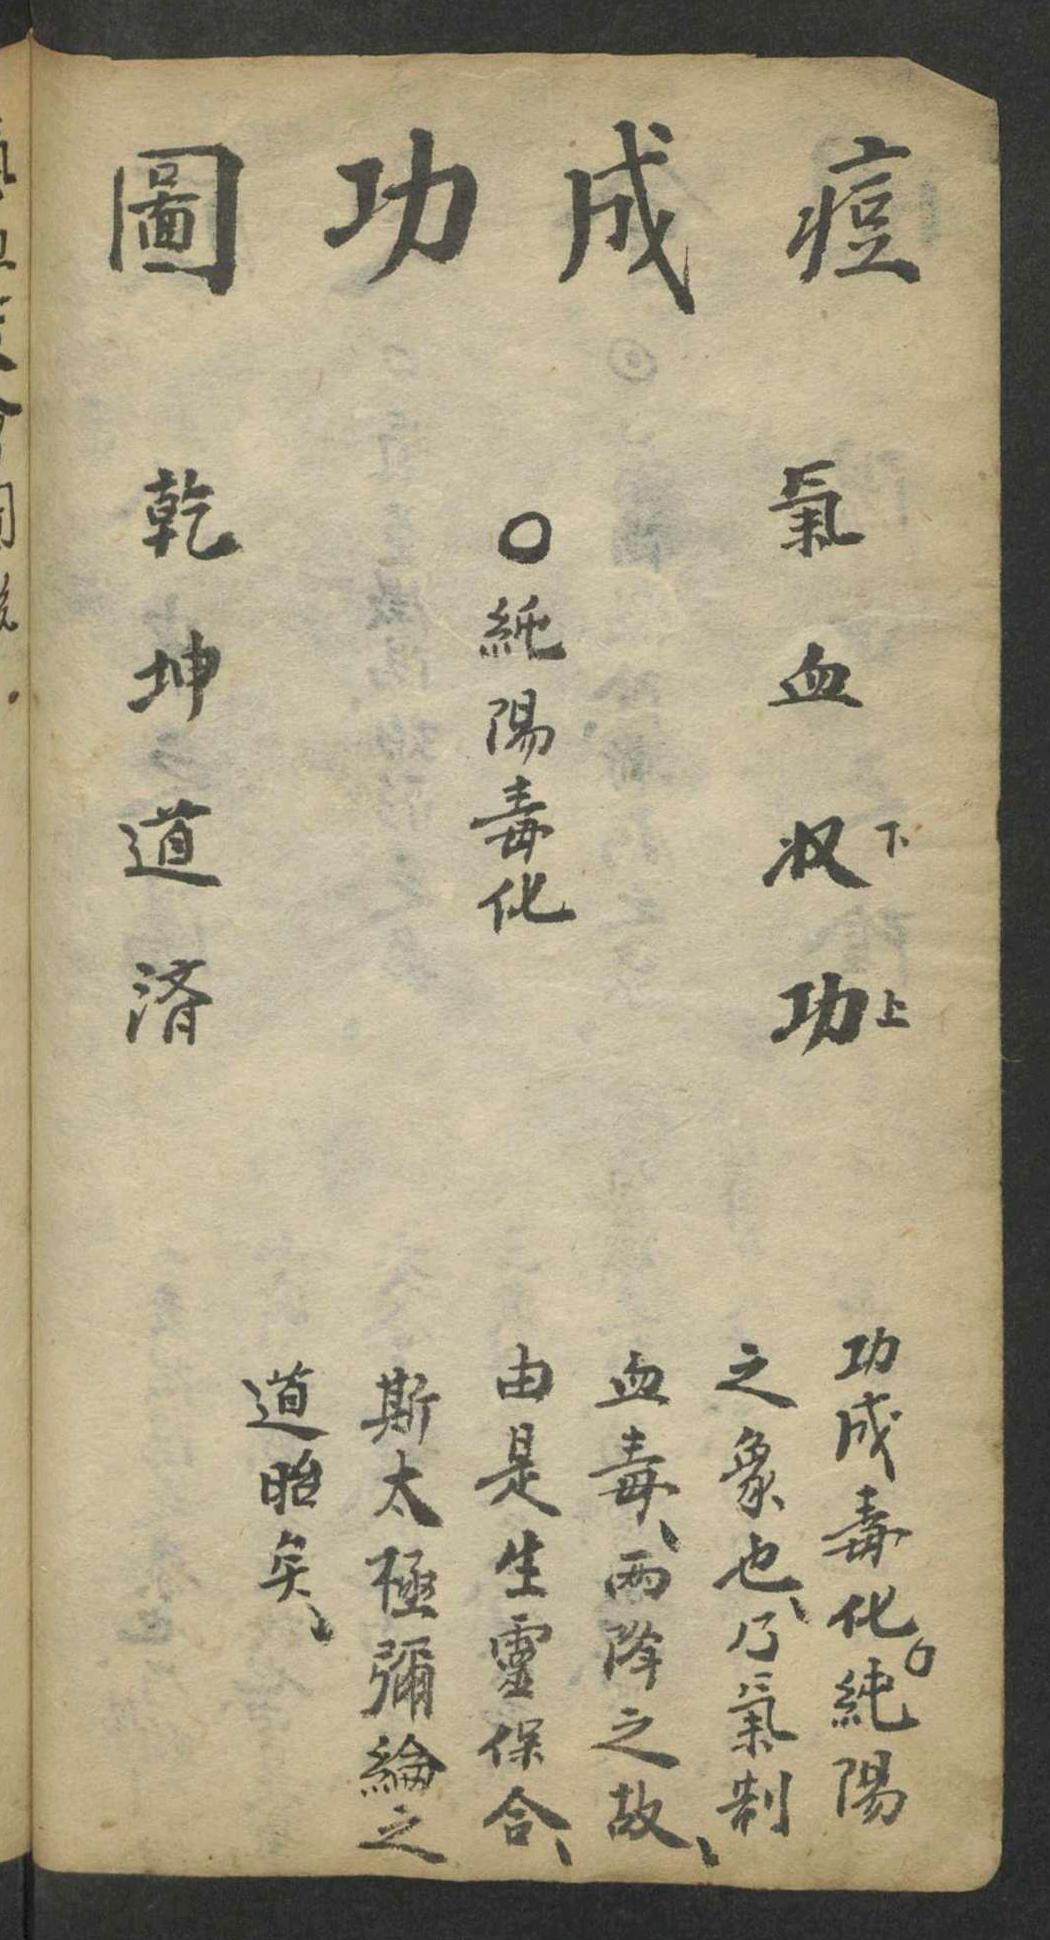 痘成功圖
氣血收功
下上
○純陽毒化
乾坤道済
功成毒化○純陽
之象也、乃氣制
血毒、兩降之故、
由是生靈保合、
斯太極彌綸之
道昭矣、